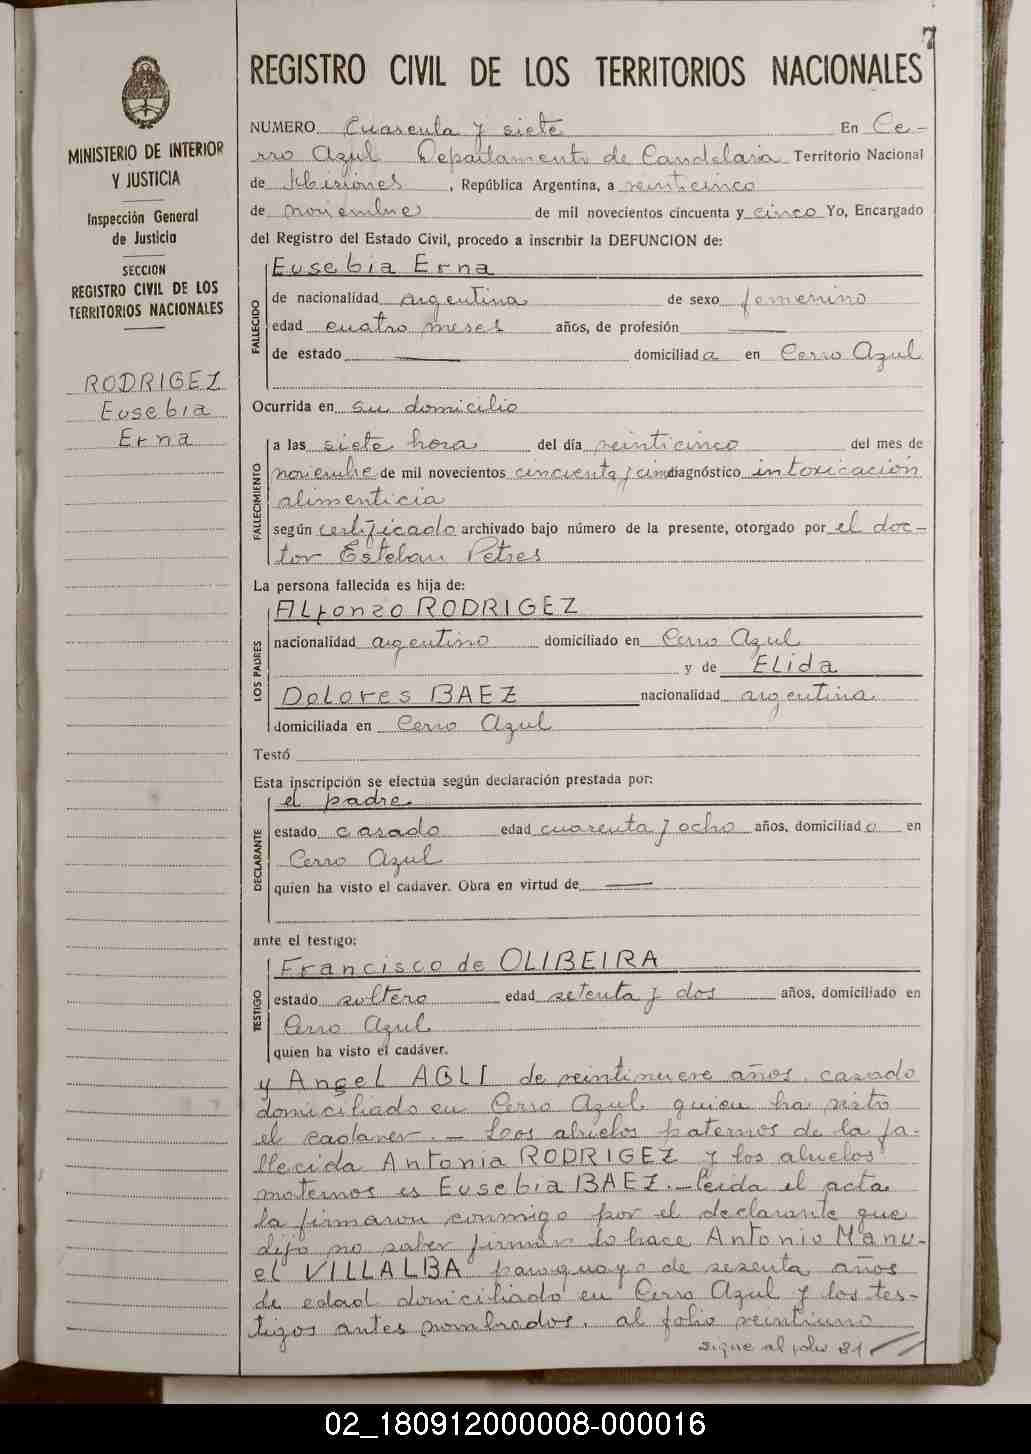 7
REGISTRO CIVIL DE LOS TERRITORIOS NACIONALES
MINISTERIO DE INTERIOR
Y JUSTICIA
Inspección General
de Justicia
SECCION
REGISTRO CIVIL DE LOS
TERRITORIOS NACIONALES
RODRIGEZ
Eusebia
Erna
NUMERO Cuarenta y siete En Ce-
rro Azul Departamento de Candelaria Territorio Nacional
de Misiones, República Argentina, a veinticinco
de noviembre de mil novecientos cincuenta y cinco Yo, Encargado
del Registro del Estado Civil, procedo a inscribir la DEFUNCION de:
FALLECIDO
Eusebia Erna
de nacionalidad argentina de sexo femenino
edad cuatro meses años, de profesión ——
de estado —— domiciliad a en Cerro Azul
Ocurrida en su domicilio
FALLECIMIENTO
a las siete hora del día veinticinco del mes de
noviembre de mil novecientos cincuenta y cinco diagnóstico intoxicación
alimenticia
según certificado archivado bajo número de la presente, otorgado por el doc-
tor Esteban Petres
La persona fallecida es hija de:
LOS PADRES
ALfonzo RODRIGEZ
nacionalidad argentino domiciliado en Cerro Azul
y de ELida
DoLores BAEZ nacionalidad argentina
domiciliada en Cerro Azul
Testó
Esta inscripción se efectúa según declaración prestada por:
DECLARANTE
el padre
estado casado edad cuarenta y ocho años, domiciliad o en
Cerro Azul
quien ha visto el cadáver. Obra en virtud de ——
ante el testigo:
TESTIGO
Francisco de OLIBEIRA
estado soltero edad setenta y dos años, domiciliado en
Cerro Azul
quien ha visto el cadáver.
y Angel de veintinueve años, casado
domiciliado en Cerro Azul quien ha visto
el cadaver. — Loos abuelos paternos de la fa-
llecida Antonia RODRIGEZ y los abuelos
maternos es Eusebia BAEZ. — Leida el acta
la firmaron conmigo por el declarante que
dijo no saber firmar lo hace Antonio Manu-
el VILLALBA paraguayo de sesenta años
de edad domiciliado en Cerro Azul y los tes-
tigos antes nombrados. al folio veintiuno
sigue al folio 21
02_180912000008-000016